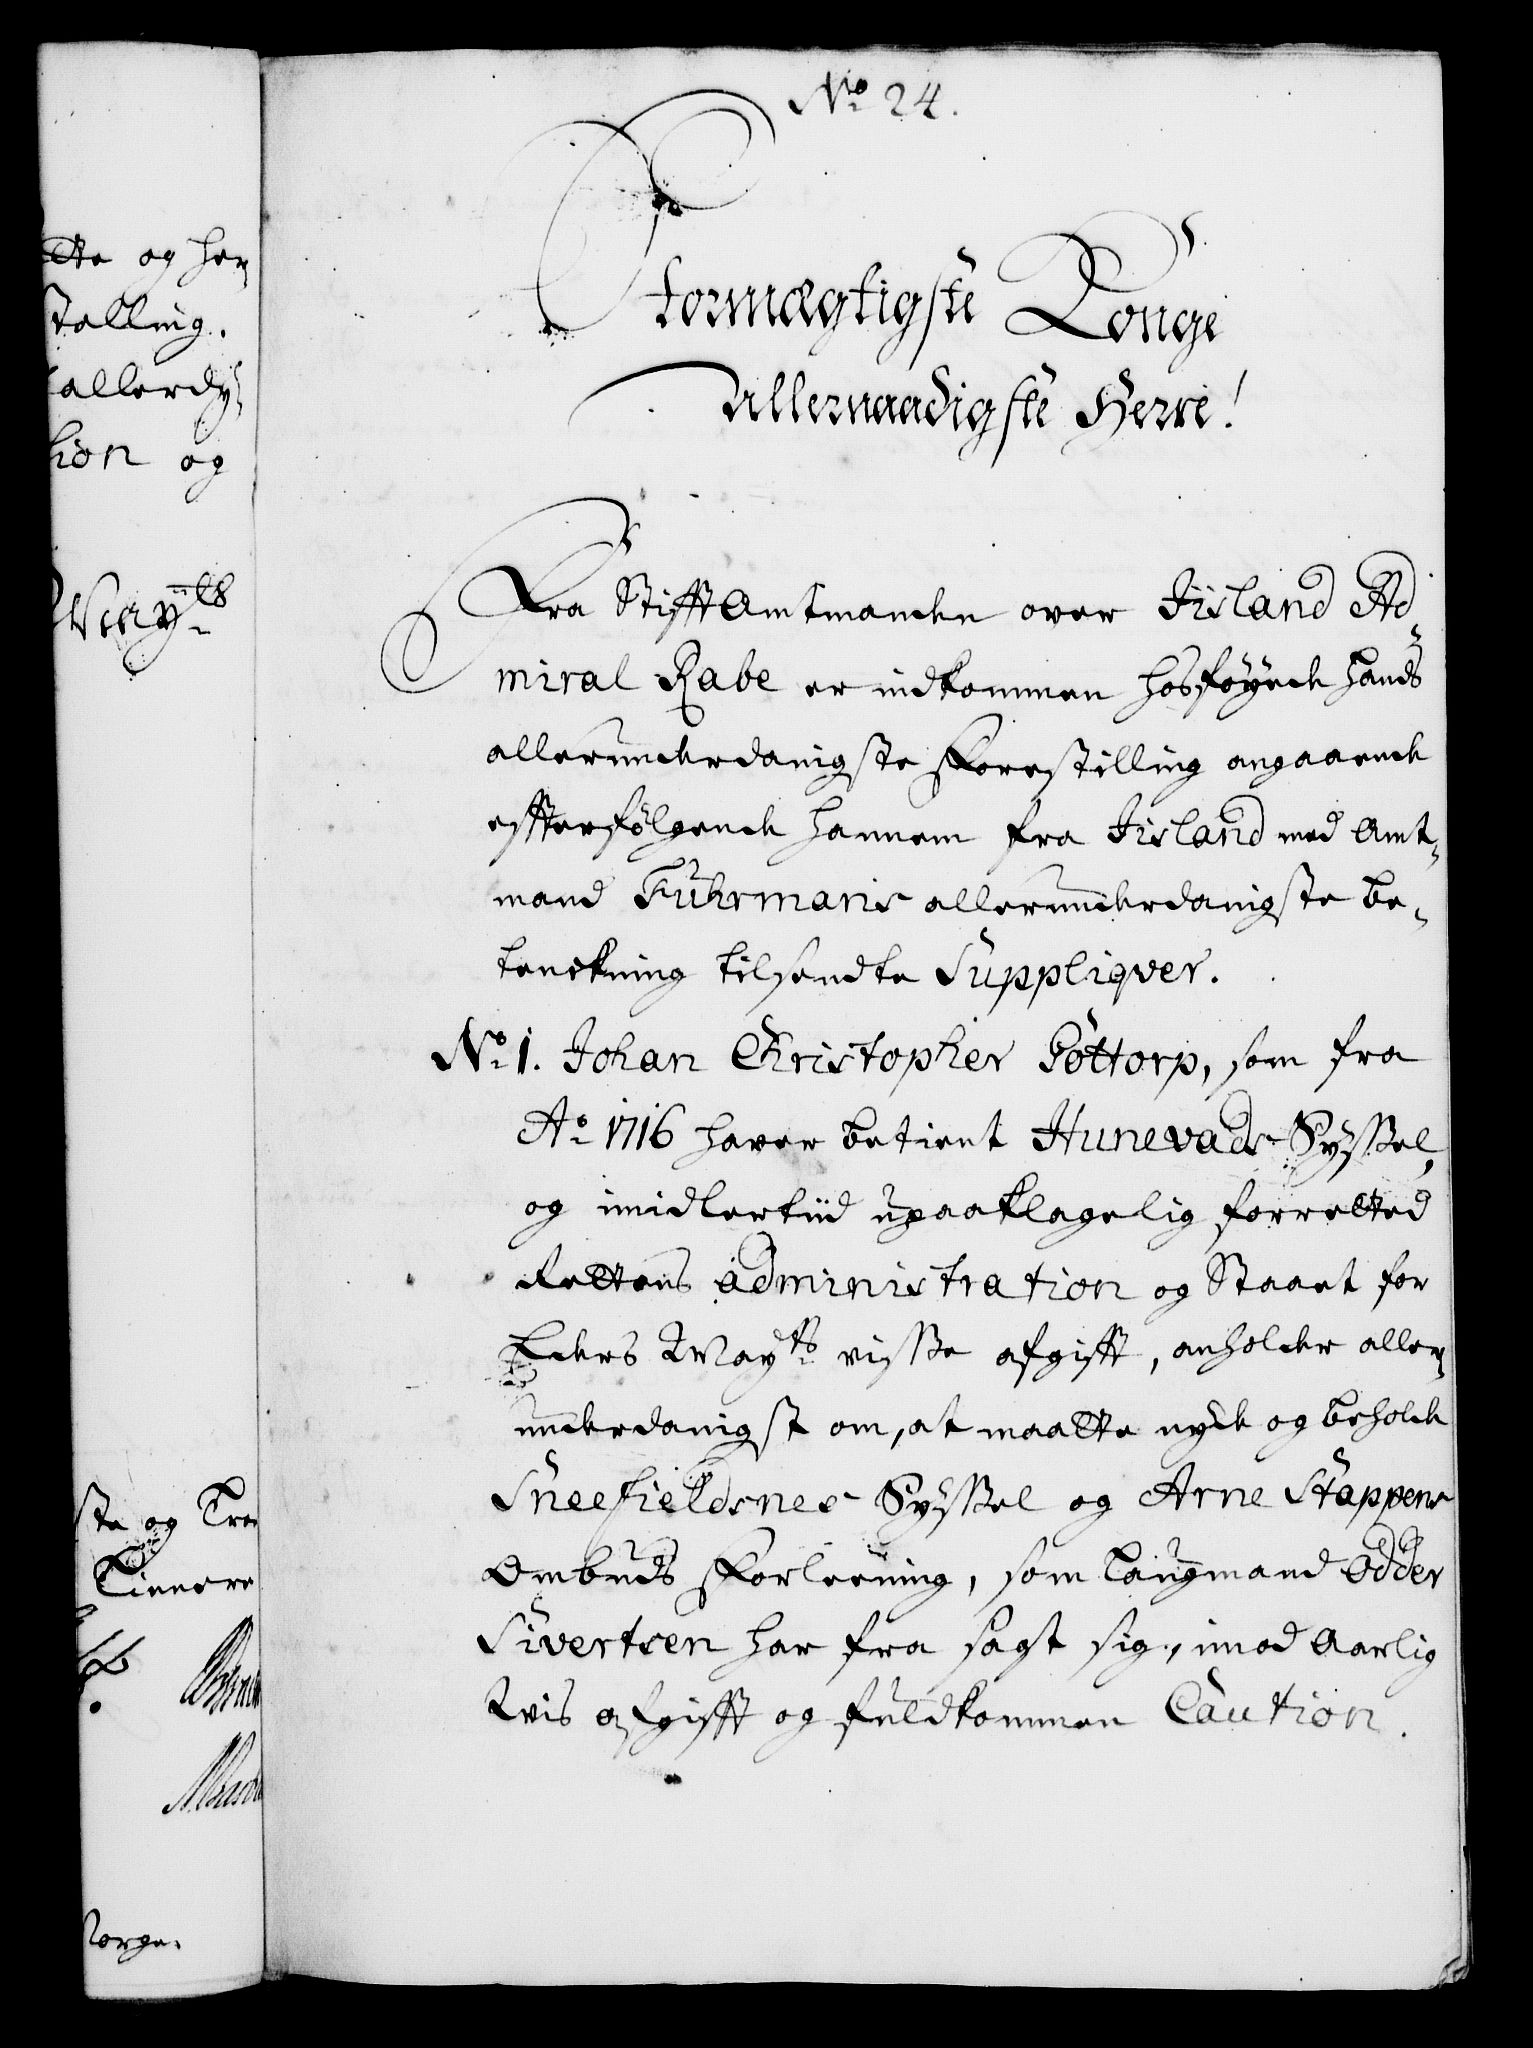 No 24.
Stormægtigste Konge
Allernaadigste Herre!
Fra Stifft Amtmanden over Jisland Ad-
miral Rabe er indkommen hosføyede hands
allerunderdanigste Forestilling angaaende
effterfølgende hannem fra Jisland med Amt-
mand Fuhrmans allerunderdanigste be-
tenckning tilsendte Suppliqver.
No 1. Johan Christopher Gottorp, som fra
Ao 1716 haver betient Hunevads Syssel,
og imidlertiid upaaklagelig forretted
Rettens administration og Staaet for
Eders Mayts visse afgifft, anholder aller-
underdanigst om, at maatte nyde og beholde
Sneefieldsnes Syssel og Arne Stappens
Ombuds Forleening, som Laugmand Odder
Sivertsen har fra sagt sig, imod Aarlig
Vis afgifft og fuldkommen Caution.
ette og her-
stelling.
allerdy-
tion og
Mayts
ste og Tro
Tienere
Norge.